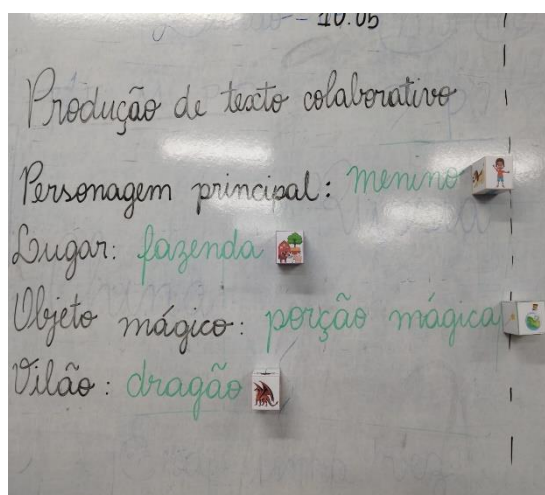 10.05
Produção de texto colaborativo
Personagem principal: menino
Lugar: fazenda
Objeto mágico: porção mágica
Vilão: dragão